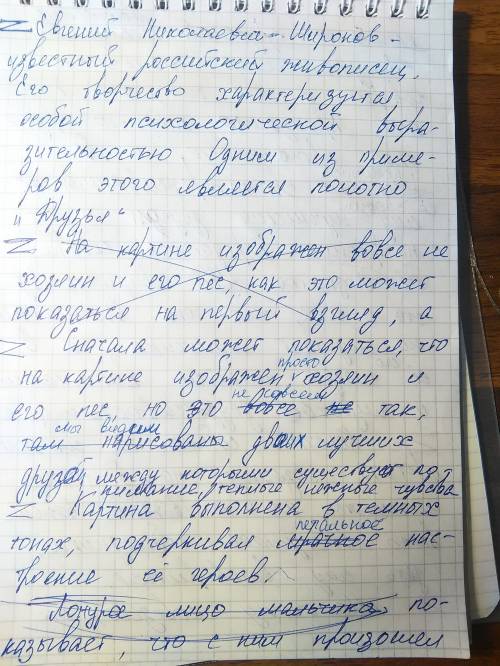 Z Евгений Николаевич Широков -
известный российский живописец.
Его творчество характеризуется
особой психологической выра-
зительностью. Одним из приме-
ров этого является полотно
"Друзья"
Z На картине изображен вовсе не
хозяин и его пес, как это может
показаться на первый взгляд, а
Z Сначала может показаться, что
просто
на картине изображен хозяин и
не совсем
его пес, но это вовсе не так,
мы видим
там нарисованы двоих лучших
друзей между которыми существуют по-
нимание теплые нежные чувства
Z Картина выполнена в темных
печальное
тонах, подчеркивая мрачное нас-
троение её героев.
Понурое лицо мальчика по-
казывает, что с ним произошел